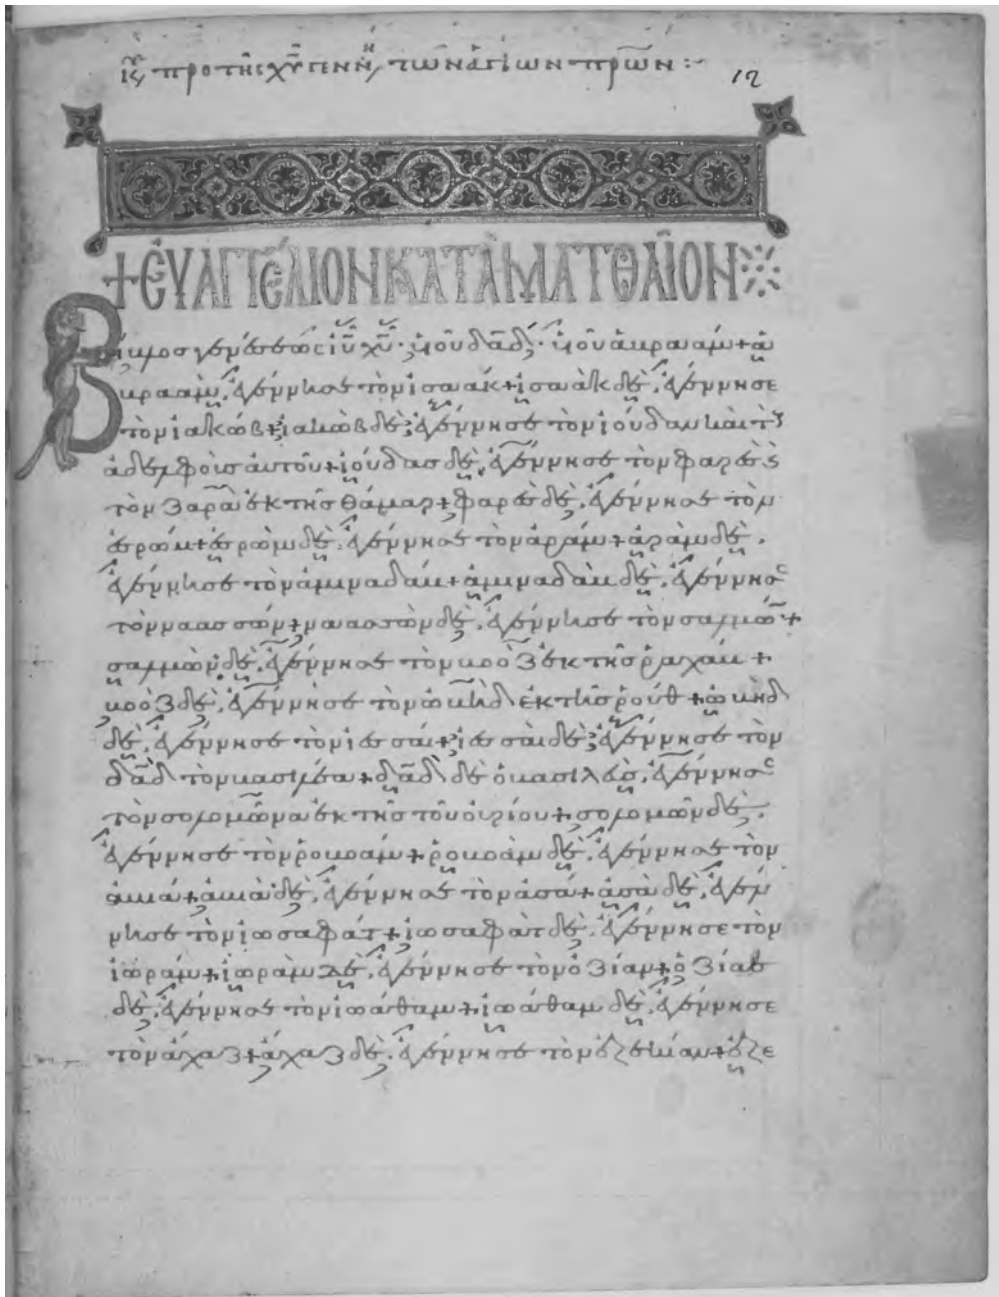 κυ προ της χυ γενν των αγίων πρων :~
12
+ ΕΥΑΓΓΕΛΙΟΝ ΚΑΤΑ ΜΑΤΘΑΙΟΝ
Βίβλος γενέσεως ιυ χυ · υἱοῦ δαδ · υἱοῦ ἀβραάμ + ἀ
βραὰμ, ἐγέννησε τὸν ἰσαάκ + ἰσαὰκ δὲ, ἐγέννησε
τὸν ἰακώβ + ἰακὼβ δὲ, ἐγέννησε τὸν ἰούδαν καὶ τοὺς
ἀδελφοὺς αὐτοῦ + ἰούδας δὲ, ἐγέννησε τὸν φαρὲς
τὸν ζαρὰ ἐκ τῆς θάμαρ + φαρὲς δὲ, ἐγέννησε τὸν
ἐσρώμ + ἐσρὼμ δὲ, ἐγέννησε τὸν ἀράμ + ἀρὰμ δὲ,
ἐγέννησε τὸν ἀμιναδάμ + ἀμιναδὰμ δὲ, ἐγέννησε
τὸν ναασσών + ναασσὼν δὲ, ἐγέννησε τὸν σαλμών +
σαλμὼν δὲ, ἐγέννησε τὸν βοὸζ ἐκ τῆς ῥαχάβ +
βοὸζ δὲ, ἐγέννησε τὸν ὠβὴδ ἐκ τῆς ῥούθ + ὠβὴδ
δὲ, ἐγέννησε τὸν ἰεσσαί + ἰεσσαὶ δὲ, ἐγέννησε τὸν
δαδ τὸν βασιλέα + δαδ δὲ ὁ βασιλεὺς, ἐγέννησε
τὸν σολομῶνα ἐκ τῆς τοῦ οὐρίου + σολομῶν δὲ,
ἐγέννησε τὸν ῥοβοάμ + ῥοβοὰμ δὲ, ἐγέννησε τὸν
ἀβιά + ἀβιὰ δὲ, ἐγέννησε τὸν ἀσά + ἀσὰ δὲ, ἐγέν
νησε τὸν ἰωσαφάτ + ἰωσαφὰτ δὲ, ἐγέννησε τὸν
ἰωράμ + ἰωρὰμ δὲ, ἐγέννησε τὸν ὀζίαν + ὀζίας
δὲ, ἐγέννησε τὸν ἰωάθαμ + ἰωάθαμ δὲ, ἐγέννησε
τὸν ἄχαζ + ἄχαζ δὲ, ἐγέννησε τὸν ἐζεκίαν + ἐζε